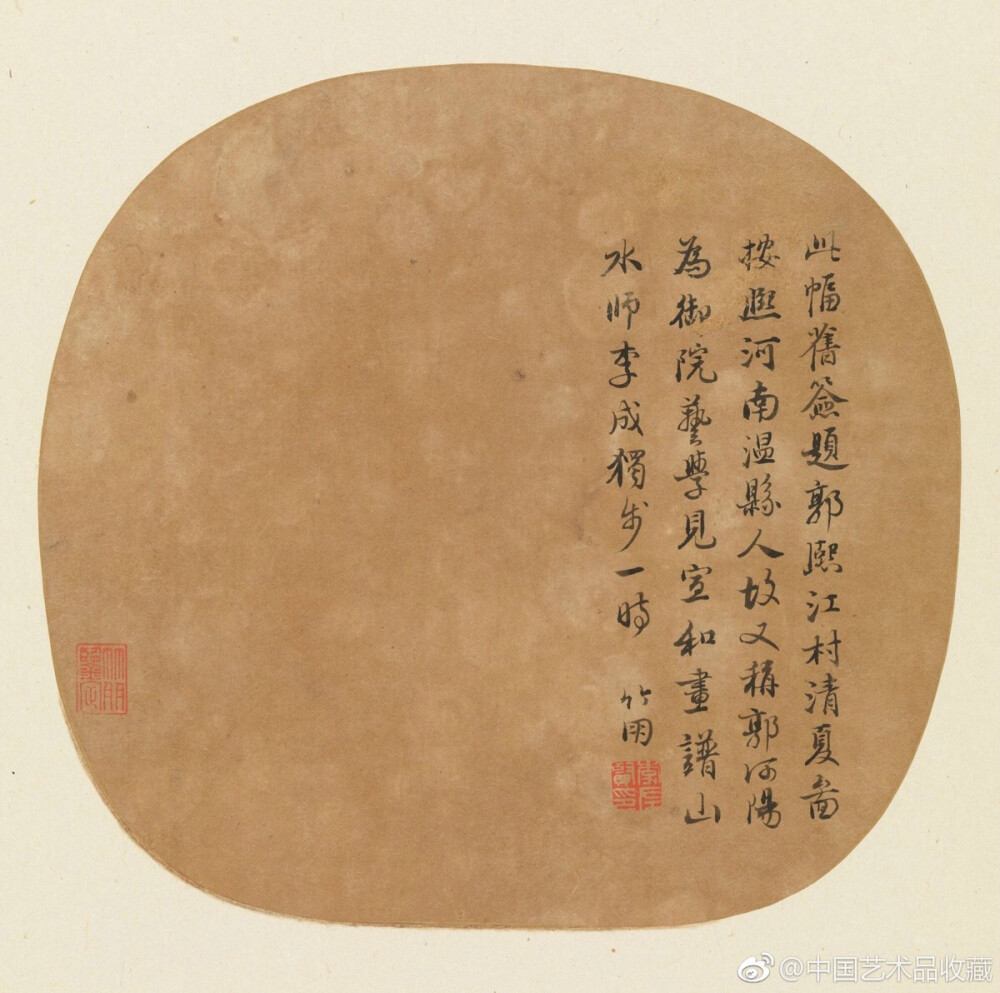 此幅舊簽題郭熙江村清夏啚
按熙河南温縣人故又稱郭河陽
為御院藝學見宣和畫譜山
水師李成獨步一時
竹朋
李佐賢印
竹朋鑒定
@中国艺术品收藏